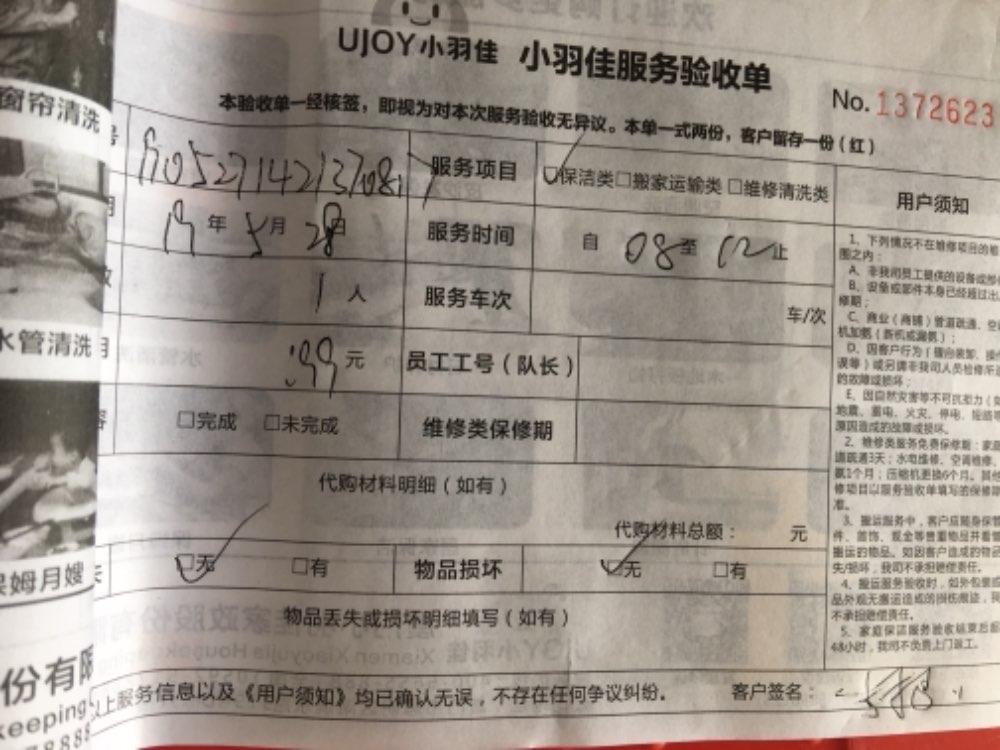 UJOY小羽佳 小羽佳服务验收单
No. 1372623
本验收单一经核签，即视为对本次服务验收无异议。本单一式两份，客户留存一份（红）
服务项目 保洁类 □搬家运输类 □维修清洗类
19年5月28日 服务时间 自08至12止
1人 服务车次 车/次
199元 员工工号（队长）
□完成 □未完成 维修类保修期
代购材料明细（如有）
代购材料总额： 元
无 □有 物品损坏 无 □有
物品丢失或损坏明细填写（如有）
以上服务信息以及《用户须知》均已确认无误，不存在任何争议纠纷。 客户签名：
用户须知
1、下列情况不在维修项目的
围之内：
A、非我司员工提供的设备或
B、设备或部件本身已经超过出
修期；
C、商业（商铺）管道疏通、空
机加氨（新机或漏氨）；
D、因客户行为（擅自装卸、操
误等）或另请非我司人员检修所
的故障或损坏；
E、因自然灾害等不可抗力（
地震、雷电、火灾、停电、短路
原因造成的故障或损坏。
2、维修类服务免费保修期：家庭
道疏通3天；水电维修、空调维修、
氨1个月；压缩机更换6个月。其他
修项目以服务验收单填写的保修期
准。
3、搬运服务中，客户应随身保管
件、首饰、现金等贵重物品并看管
搬运的物品。如因客户造成的物品
失/损坏，我司不承担赔偿责任。
4、搬运服务验收时，如外包装或
品外观无搬运造成的损伤痕迹，我
不承担赔偿责任。
5、家庭保洁服务验收结束后超
48小时，我司不负责上门返工。
窗帘清洗
水管清洗
保姆月嫂
份有限
keeping